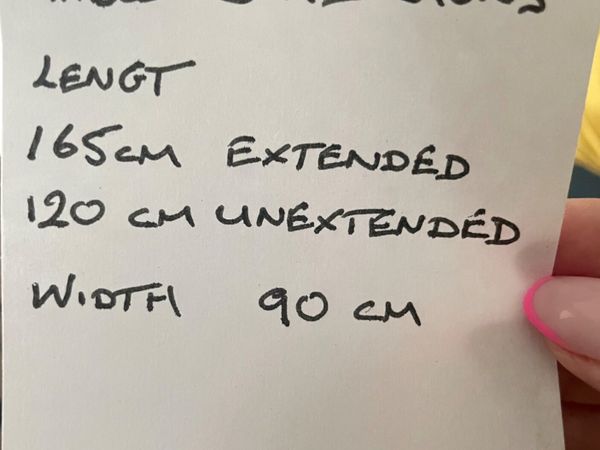 LENGT
165CM EXTENDED
120 CM UNEXTENDED
WIDTH 90 CM